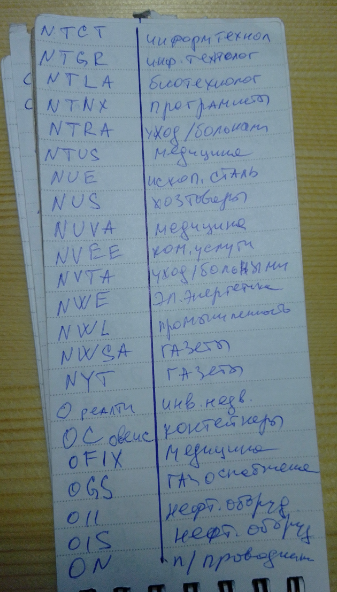 NTCT информтехнол
NTGR инф. технолог
NTLA биотехнолог
NTNX програмисты
NTRA уход/больными
NTUS медицина
NUE ископ. сталь
NUS хозтовары
NUVA медицина
NVEE ком. услуги
NVTA уход/больными
NWE эл. энергетика
NWL промышленность
NWSA газеты
NYT газеты
O реалти инв. недв.
OC овенс контейнеры
OFIX медицина
OGS газоснабжение
OII нефт. оборуд.
OIS нефт. оборуд
ON п/проводник